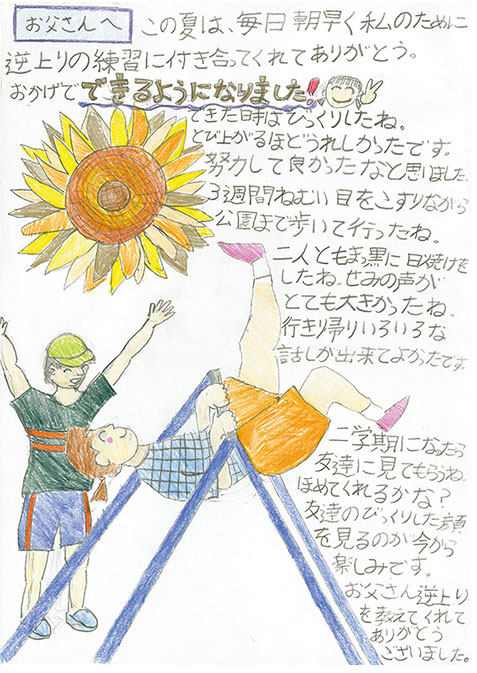 お父さんへ この夏は、毎日朝早く私のために
逆上りの練習に付き合ってくれてありがとう。
おかげでできるようになりました!
できた時はびっくりしたね。
とび上がるほどうれしかったです。
努力して良かったなと思いました。
3週間ねむい目をこすりながら
公園まで歩いて行ったね。
二人ともまっ黒に日焼けを
したね。せみの声が
とても大きかったね。
行きり帰りいろいろな
話しが出来てよかったです。
二学期になったら
友達に見てもらうね。
ほめてくれるかな?
友達のびっくりした顔
を見るのが今から
楽しみです。
お父さん逆上り
を教えてくれて
ありがとう
ございました。